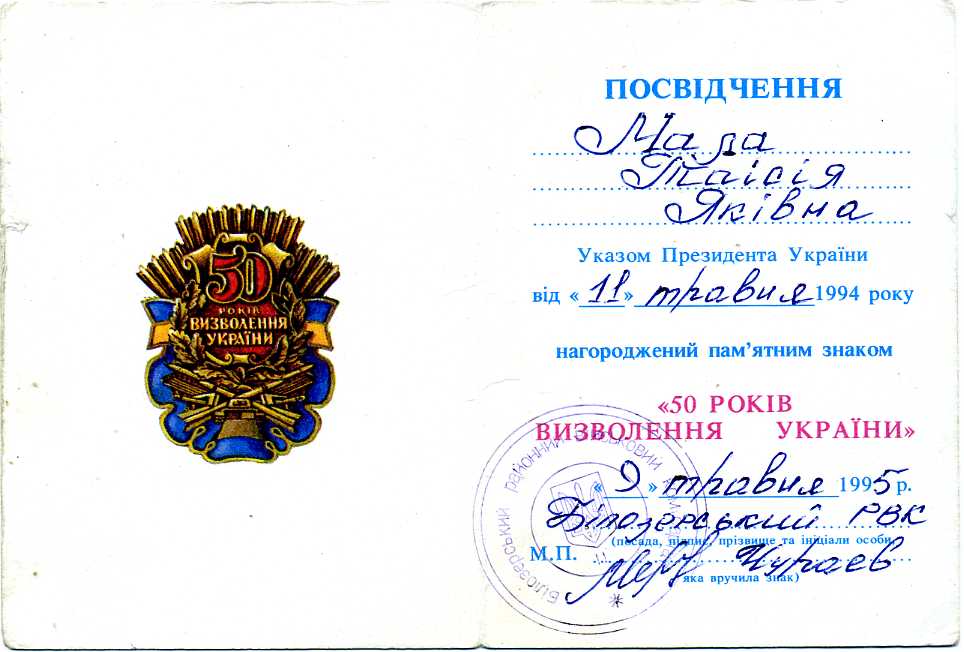 50
РОКІВ
ВИЗВОЛЕННЯ
УКРАЇНИ
ПОСВІДЧЕННЯ
Мала
Таісія
Яківна
Указом Президента України
від «11» травня 1994 року
нагороджений пам’ятним знаком
«50 РОКІВ
ВИЗВОЛЕННЯ УКРАЇНИ»
«9» травня 1995 р.
Білозерський РВК
(посада, підпис, прізвище та ініціали особи,
М.П. Чураев
яка вручила знак)
Білозерський районний військовий